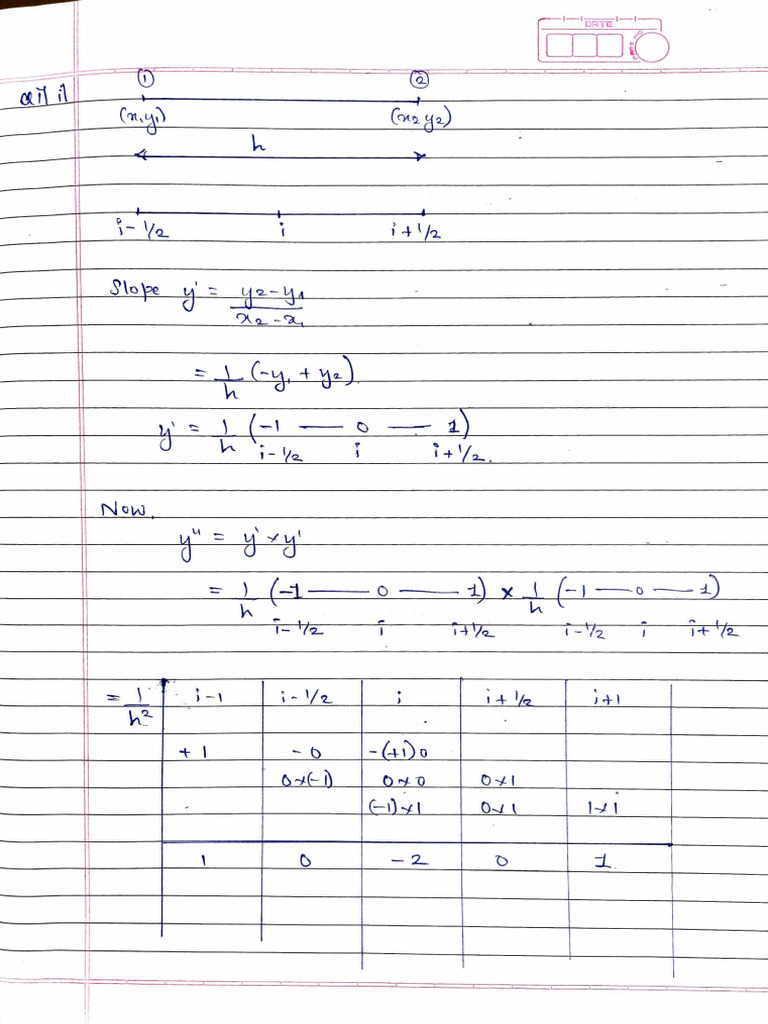 DATE
① ②
Q1] i]
(x₁y₁) (x₂ y₂)
h
i-1/2 i i+1/2
Slope y' = y2-y1 / x2-x1
= 1/h (-y₁ + y₂)
y' = 1/h (-1 — 0 — 1)
i-1/2 i i+1/2.
Now,
y" = y' × y'
= 1/h (-1 — 0 — 1) × 1/h (-1 — 0 — 1)
i-1/2 i i+1/2 i-1/2 i i+1/2
= 1/h² i-1 i-1/2 i i+1/2 i+1
+1 -0 -(+1)0
0×(-1) 0×0 0×1
(-1)×1 0×1 1×1
1 0 -2 0 1